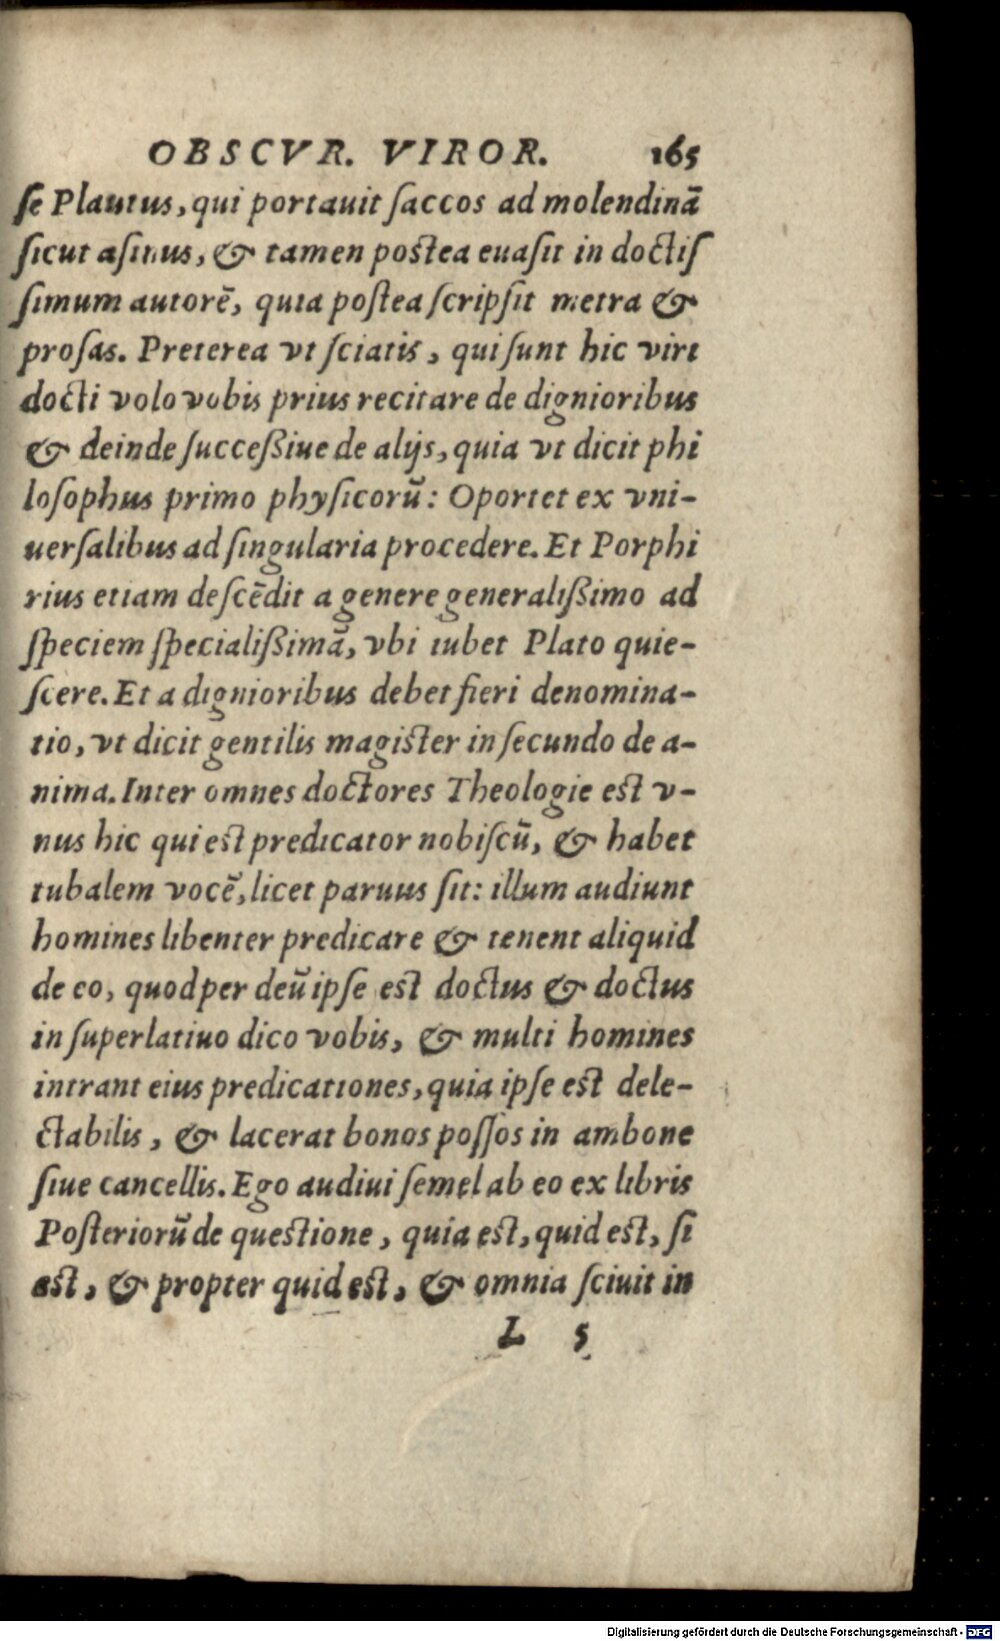 OBSCVR. VIROR. 165
ſe Plautus, qui portauit ſaccos ad molendinā
ſicut aſinus, & tamen poſtea euaſit in doctiſ
ſimum autorē, quia poſtea ſcripſit metra &
proſas. Preterea vt ſciatis, qui ſunt hic viri
docti volo vobis prius recitare de dignioribus
& deinde ſucceßiue de alijs, quia vt dicit phi
loſophus primo phyſicorū: Oportet ex vni-
uerſalibus ad ſingularia procedere. Et Porphi
rius etiam deſcēdit a genere generalißimo ad
ſpeciem ſpecialißimā, vbi iubet Plato quie-
ſcere. Et a dignioribus debet fieri denomina-
tio, vt dicit gentilis magiſter in ſecundo de a-
nima. Inter omnes doctores Theologie eſt v-
nus hic qui eſt predicator nobiſcū, & habet
tubalem vocē, licet paruus ſit: illum audiunt
homines libenter predicare & tenent aliquid
de eo, quod per deū ipſe eſt doctus & doctus
in ſuperlatiuo dico vobis, & multi homines
intrant eius predicationes, quia ipſe eſt dele-
ctabilis, & lacerat bonos poſſos in ambone
ſiue cancellis. Ego audiui ſemel ab eo ex libris
Poſteriorū de queſtione, quia eſt, quid eſt, ſi
eſt, & propter quid eſt, & omnia ſciuit in
L 5
Digitalisierung gefördert durch die Deutsche Forschungsgemeinschaft - DFG